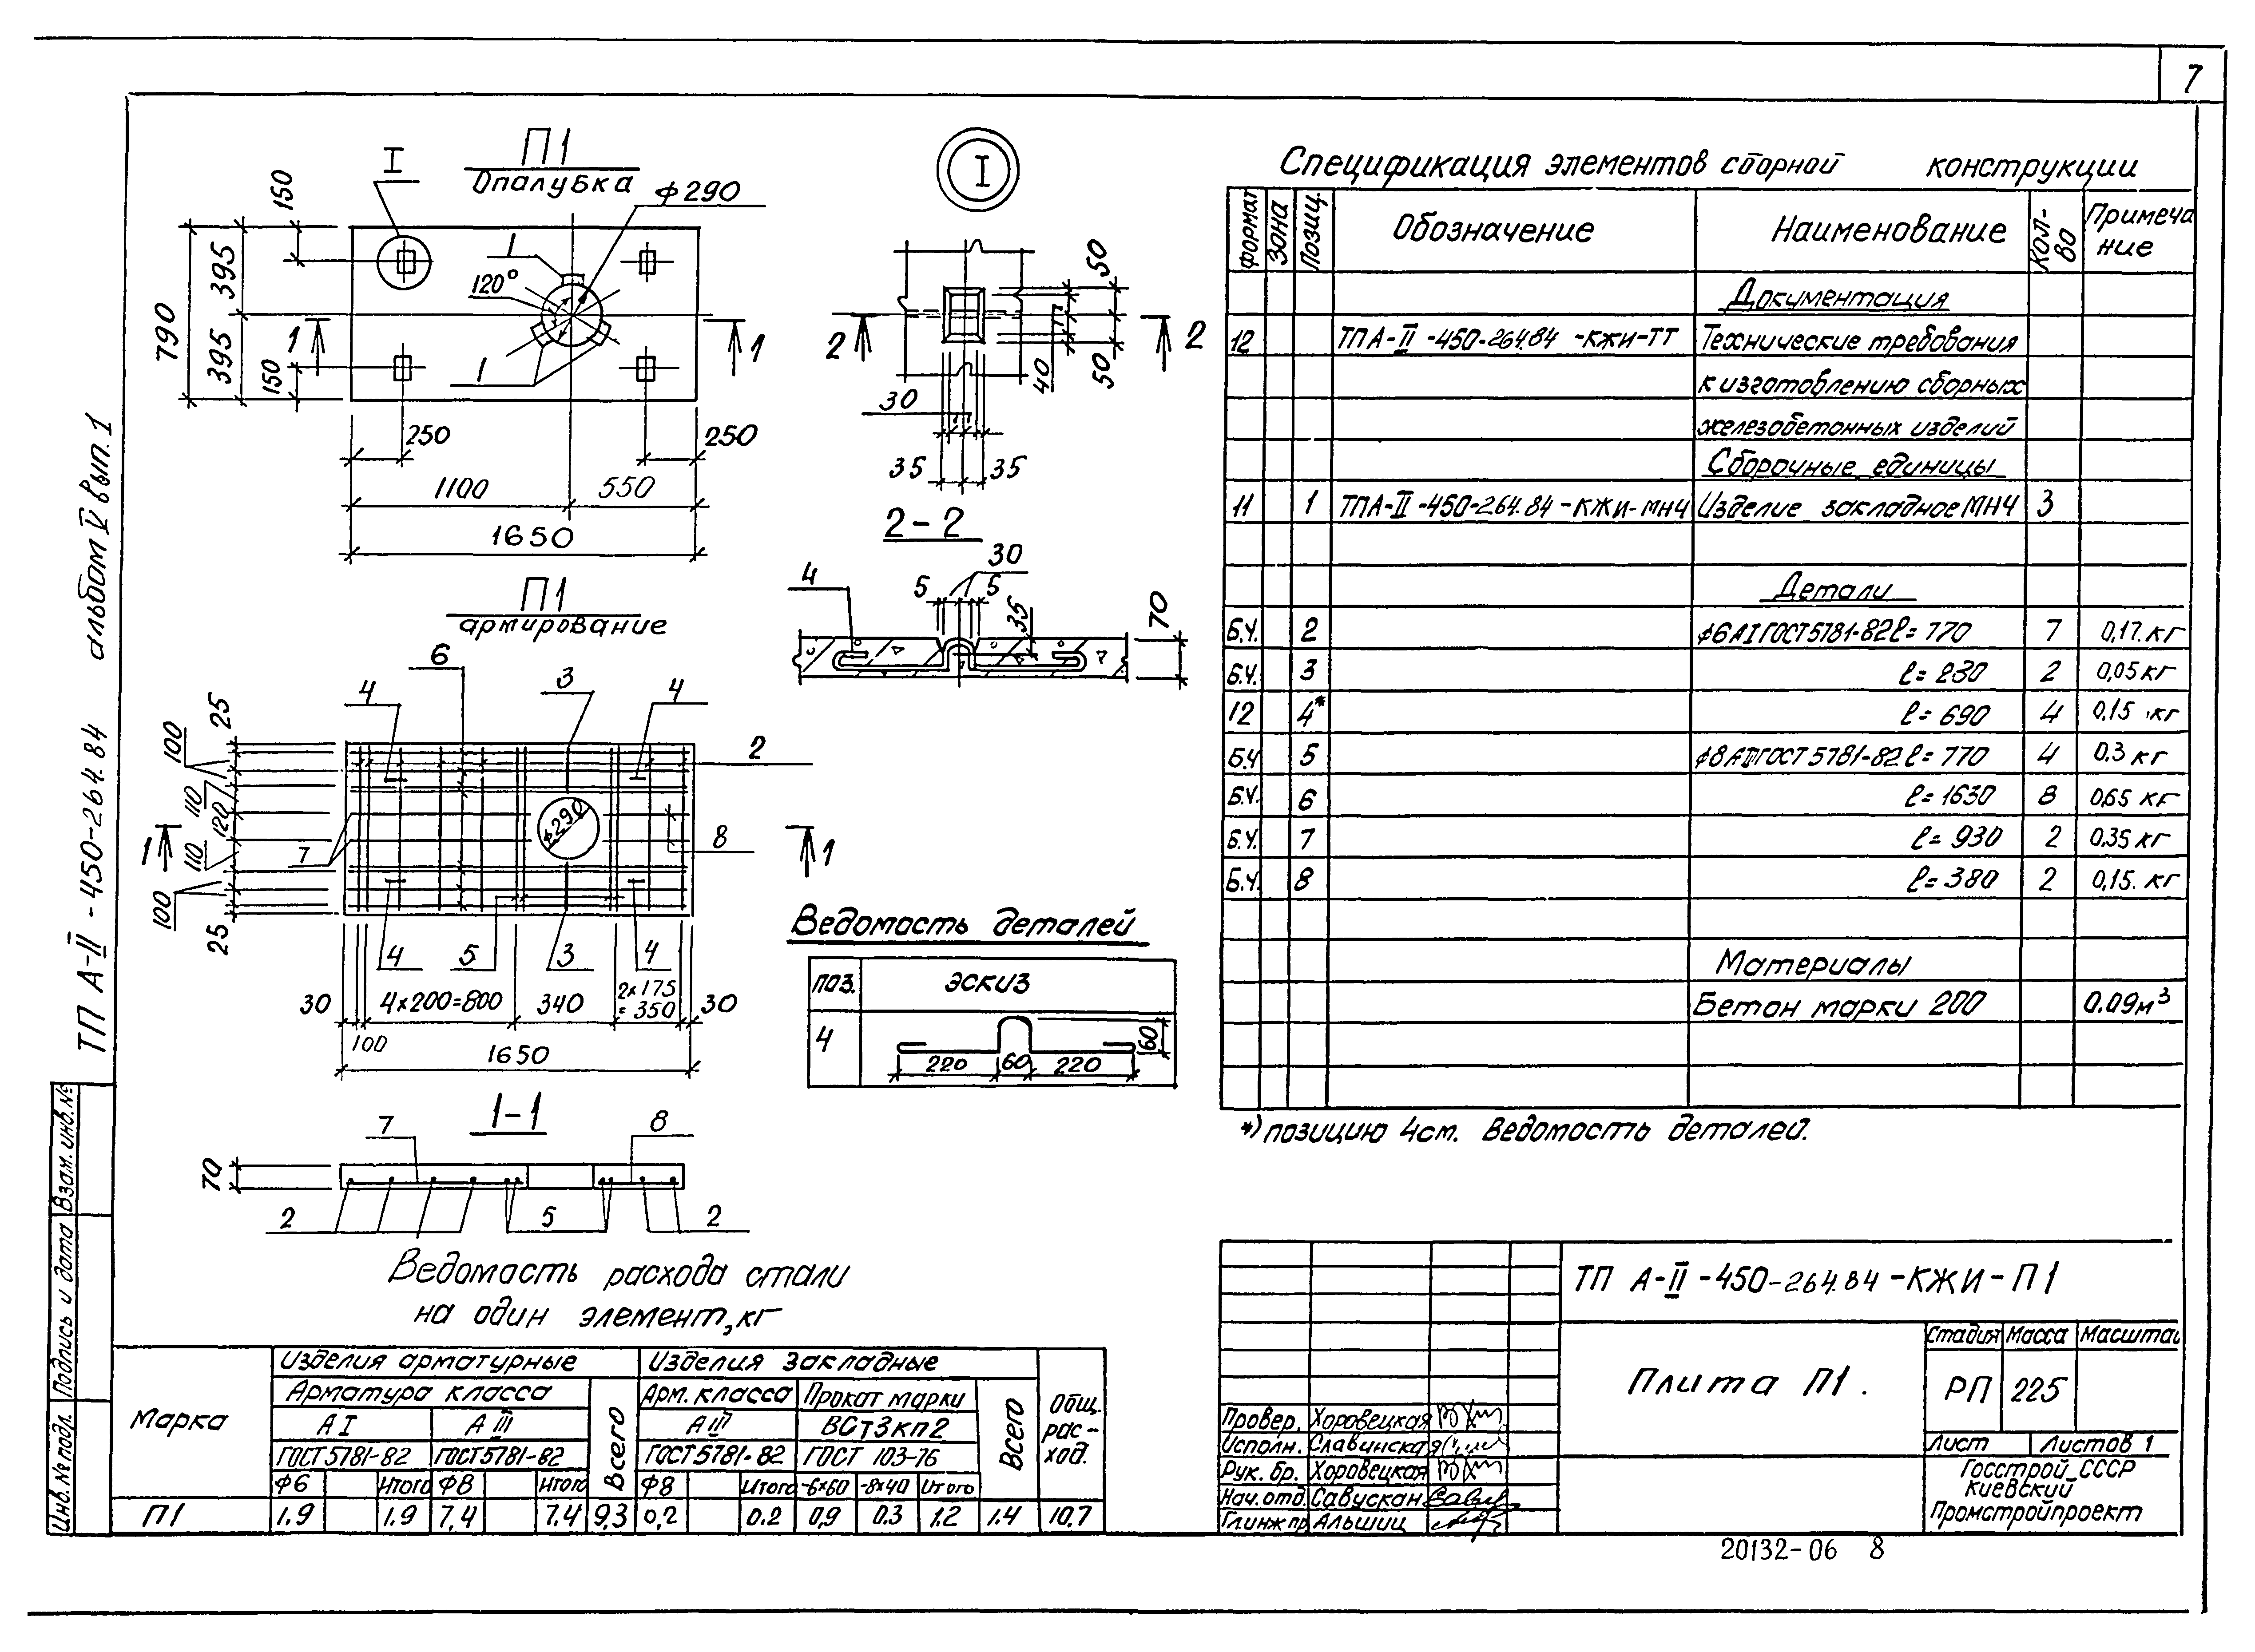 7
П1
Опалубка
I
ф290
1
120°
1
150
395
790
395
150
1
1
250
250
1100
550
1650
I
50
2
2
40
50
30
35
35
2-2
4
30
5
5
35
70
П1
армирование
6
4
3
4
2
25
100
110
120
110
100
25
1
ф290
1
7
8
4
5
3
4
30
4х200=800
340
2х175
=350
30
100
1650
1-1
7
8
70
2
5
2
Ведомость деталей
поз.
эскиз
4
220
60
220
60
Спецификация элементов сборной конструкции
Формат
Зона
Позиц.
Обозначение
Наименование
Кол-во
Примечание
Документация
12 ТП А-II-450-264.84-КЖИ-ТТ Технические требования
к изготовлению сборных
железобетонных изделий
Сборочные единицы
11 1 ТПА-II-450-264.84-КЖИ-МН4 Изделие закладное МН4 3
Детали
Б.Ч. 2 ф6АIГОСТ5781-82 ℓ=770 7 0,17.кг
Б.Ч. 3 ℓ=230 2 0,05 кг
12 4* ℓ=690 4 0,15 кг
Б.Ч 5 ф8АIIIГОСТ5781-82 ℓ=770 4 0.3 кг
Б.Ч. 6 ℓ=1630 8 0,65 кг
Б.Ч. 7 ℓ=930 2 0,35 кг
Б.Ч. 8 ℓ=380 2 0,15. кг
Материалы
Бетон марки 200 0.09м³
*) позицию 4 см. Ведомость деталей.
Ведомость расхода стали
на один элемент, кг
Марка
Изделия арматурные
Изделия закладные
Арматура класса
Всего
Арм. класса
Прокат марки
Всего
Общ. рас-ход.
А I
А III
А III
ВСт3кп2
ГОСТ5781-82
ГОСТ5781-82
ГОСТ5781-82
ГОСТ 103-76
ф6 Итого ф8 Итого ф8 Итого -6х60 -8х40 Итого
П1 1.9 1.9 7,4 7.4 9,3 0,2 0.2 0,9 0.3 1.2 1.4 10.7
ТП А-II-450-264.84-КЖИ-П1
Плита П1.
Стадия Масса Масштаб
РП 225
Лист Листов 1
Госстрой СССР
Киевский
Промстройпроект
Провер. Хоровецкая
Исполн. Славинская
Рук. бр. Хоровецкая
Нач.отд. Савускан
Гл.инж.пр. Альшиц
20132-06 8
ТП А-II-450-264.84 альбом V вып. 1
Взам. инв.№
Подпись и дата
Инв. № подл.